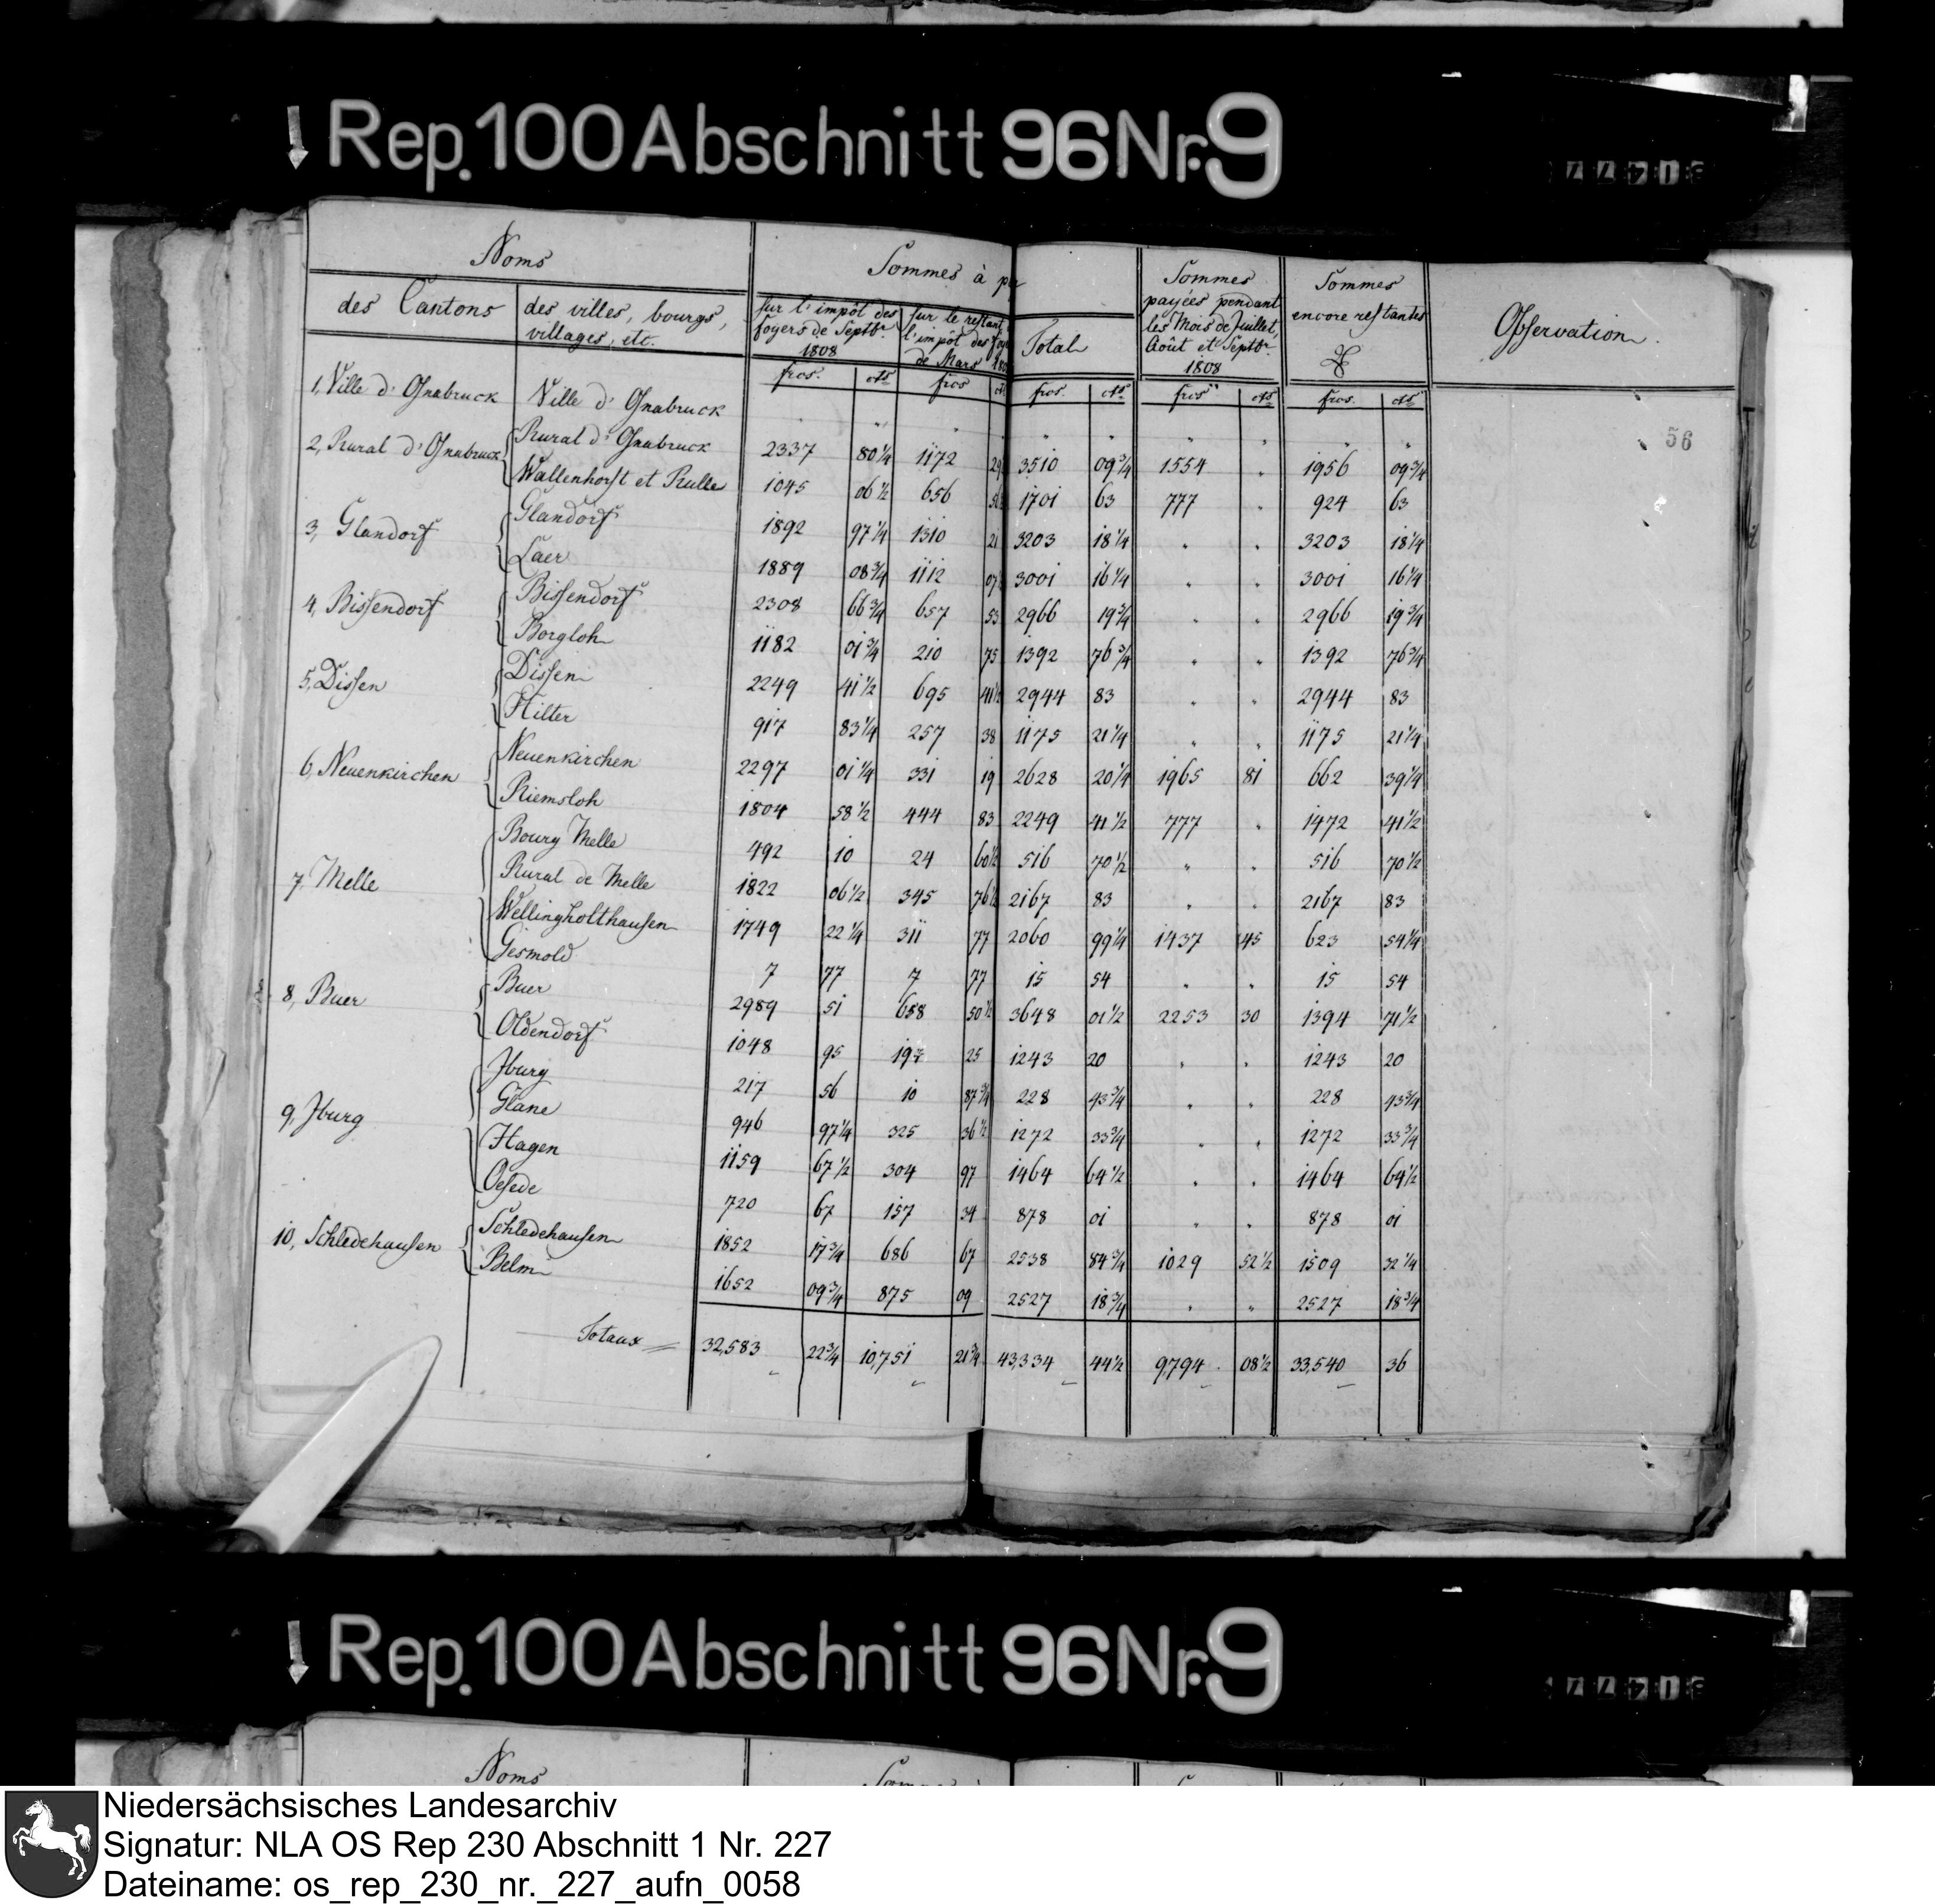 Rep. 100 Abschnitt 96 Nr. 9
Noms
Sommes à
Sommes payées pendant les Mois de Juillet, Août et Septbr. 1808
Sommes encore restantes
Observation.
des Cantons
des villes, bourgs, villages, etc.
sur l'impôt des foyers de Septbr. 1808
sur le restant l'impôt des de Mars
Total
frcs. cts frcs frcs. cts frcs cts frcs. cts
56
1, Ville d'Osnabruck Ville d'Osnabruck " " " " " " " " "
2, Rural d'Osnabruck Rural d'Osnabruck 2337 80 1/4 1172 29 3510 09 3/4 1554 " 1956 09 3/4
Wallenhorst et Rulle 1045 06 1/2 656 1701 63 777 " 924 63
3, Glandorf Glandorf 1892 97 1/4 1310 21 3203 18 1/4 " " 3203 18 1/4
Laer 1889 08 3/4 1112 07 3001 16 1/4 " " 3001 16 1/4
4, Bissendorf Bissendorf 2308 66 3/4 657 53 2966 19 3/4 " " 2966 19 3/4
Borgloh 1182 01 3/4 210 75 1392 76 3/4 " " 1392 76 3/4
5, Dissen Dissen 2249 41 1/2 695 41 1/2 2944 83 " " 2944 83
Hilter 917 83 1/4 257 38 1175 21 1/4 " " 1175 21 1/4
6, Neuenkirchen Neuenkirchen 2297 01 1/4 331 19 2628 20 1/4 1965 81 662 39 1/4
Riemsloh 1804 58 1/2 444 83 2249 41 1/2 777 " 1472 41 1/2
7, Melle Bourg Melle 492 10 24 60 1/2 516 70 1/2 " " 516 70 1/2
Rural de Melle 1822 06 1/2 345 76 1/2 2167 83 " " 2167 83
Wellingholthausen 1749 22 1/4 311 77 2060 99 1/4 1437 45 623 54 1/4
Gesmold 7 77 7 77 15 54 " " 15 54
8, Buer Buer 2989 51 658 50 1/2 3648 01 1/2 2253 30 1394 71 1/2
Oldendorf 1048 95 197 25 1243 20 " " 1243 20
9, Jburg Jburg 217 56 10 87 3/4 228 43 3/4 " " 228 43 3/4
Glane 946 97 1/4 325 36 1/2 1272 33 3/4 " " 1272 33 3/4
Hagen 1159 67 1/2 304 97 1464 64 1/2 " " 1464 64 1/2
Oesede 720 67 157 34 878 01 " " 878 01
10, Schledehausen Schledehausen 1852 17 3/4 686 67 2538 84 3/4 1029 52 1/2 1509 32 1/4
Belm 1652 09 3/4 875 09 2527 18 3/4 " " 2527 18 3/4
Totaux = 32,583 22 3/4 10,751 21 3/4 43,334 44 1/2 9,794 08 1/2 33,540 36
Rep. 100 Abschnitt 96 Nr. 9
Noms
Niedersächsisches Landesarchiv
Signatur: NLA OS Rep 230 Abschnitt 1 Nr. 227
Dateiname: os_rep_230_nr._227_aufn_0058